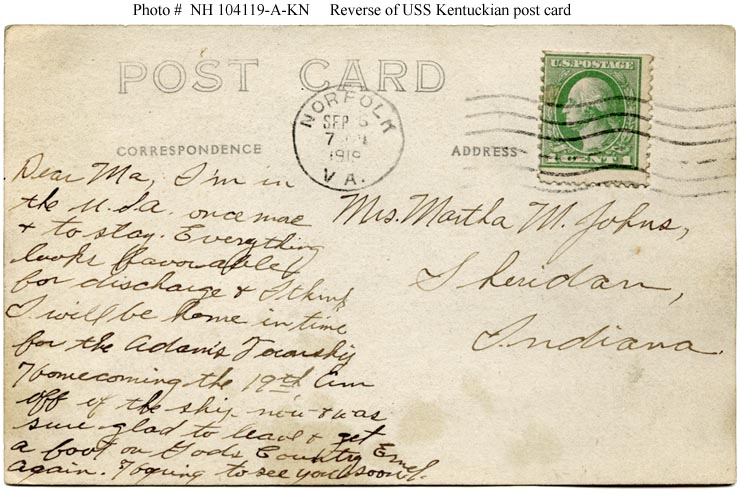 Photo # NH 104119-A-KN Reverse of USS Kentuckian post card
POST CARD
NORFOLK
SEP 6
7
1919
VA.
U.S. POSTAGE
1 CENT 1
CORRESPONDENCE
ADDRESS
Dear Ma, I'm in
the U.S.A. once more
+ to stay. Everything
looks favourable
for discharge & I think
I will be home in time
for the Adams Township
Homecoming the 19th I'm
off of the ship now + was
sure glad to leave + get
a foot on Gods Country
again. Hoping to see you soon
Ernel.
Mrs. Martha M. Johns,
Sheridan,
Indiana.